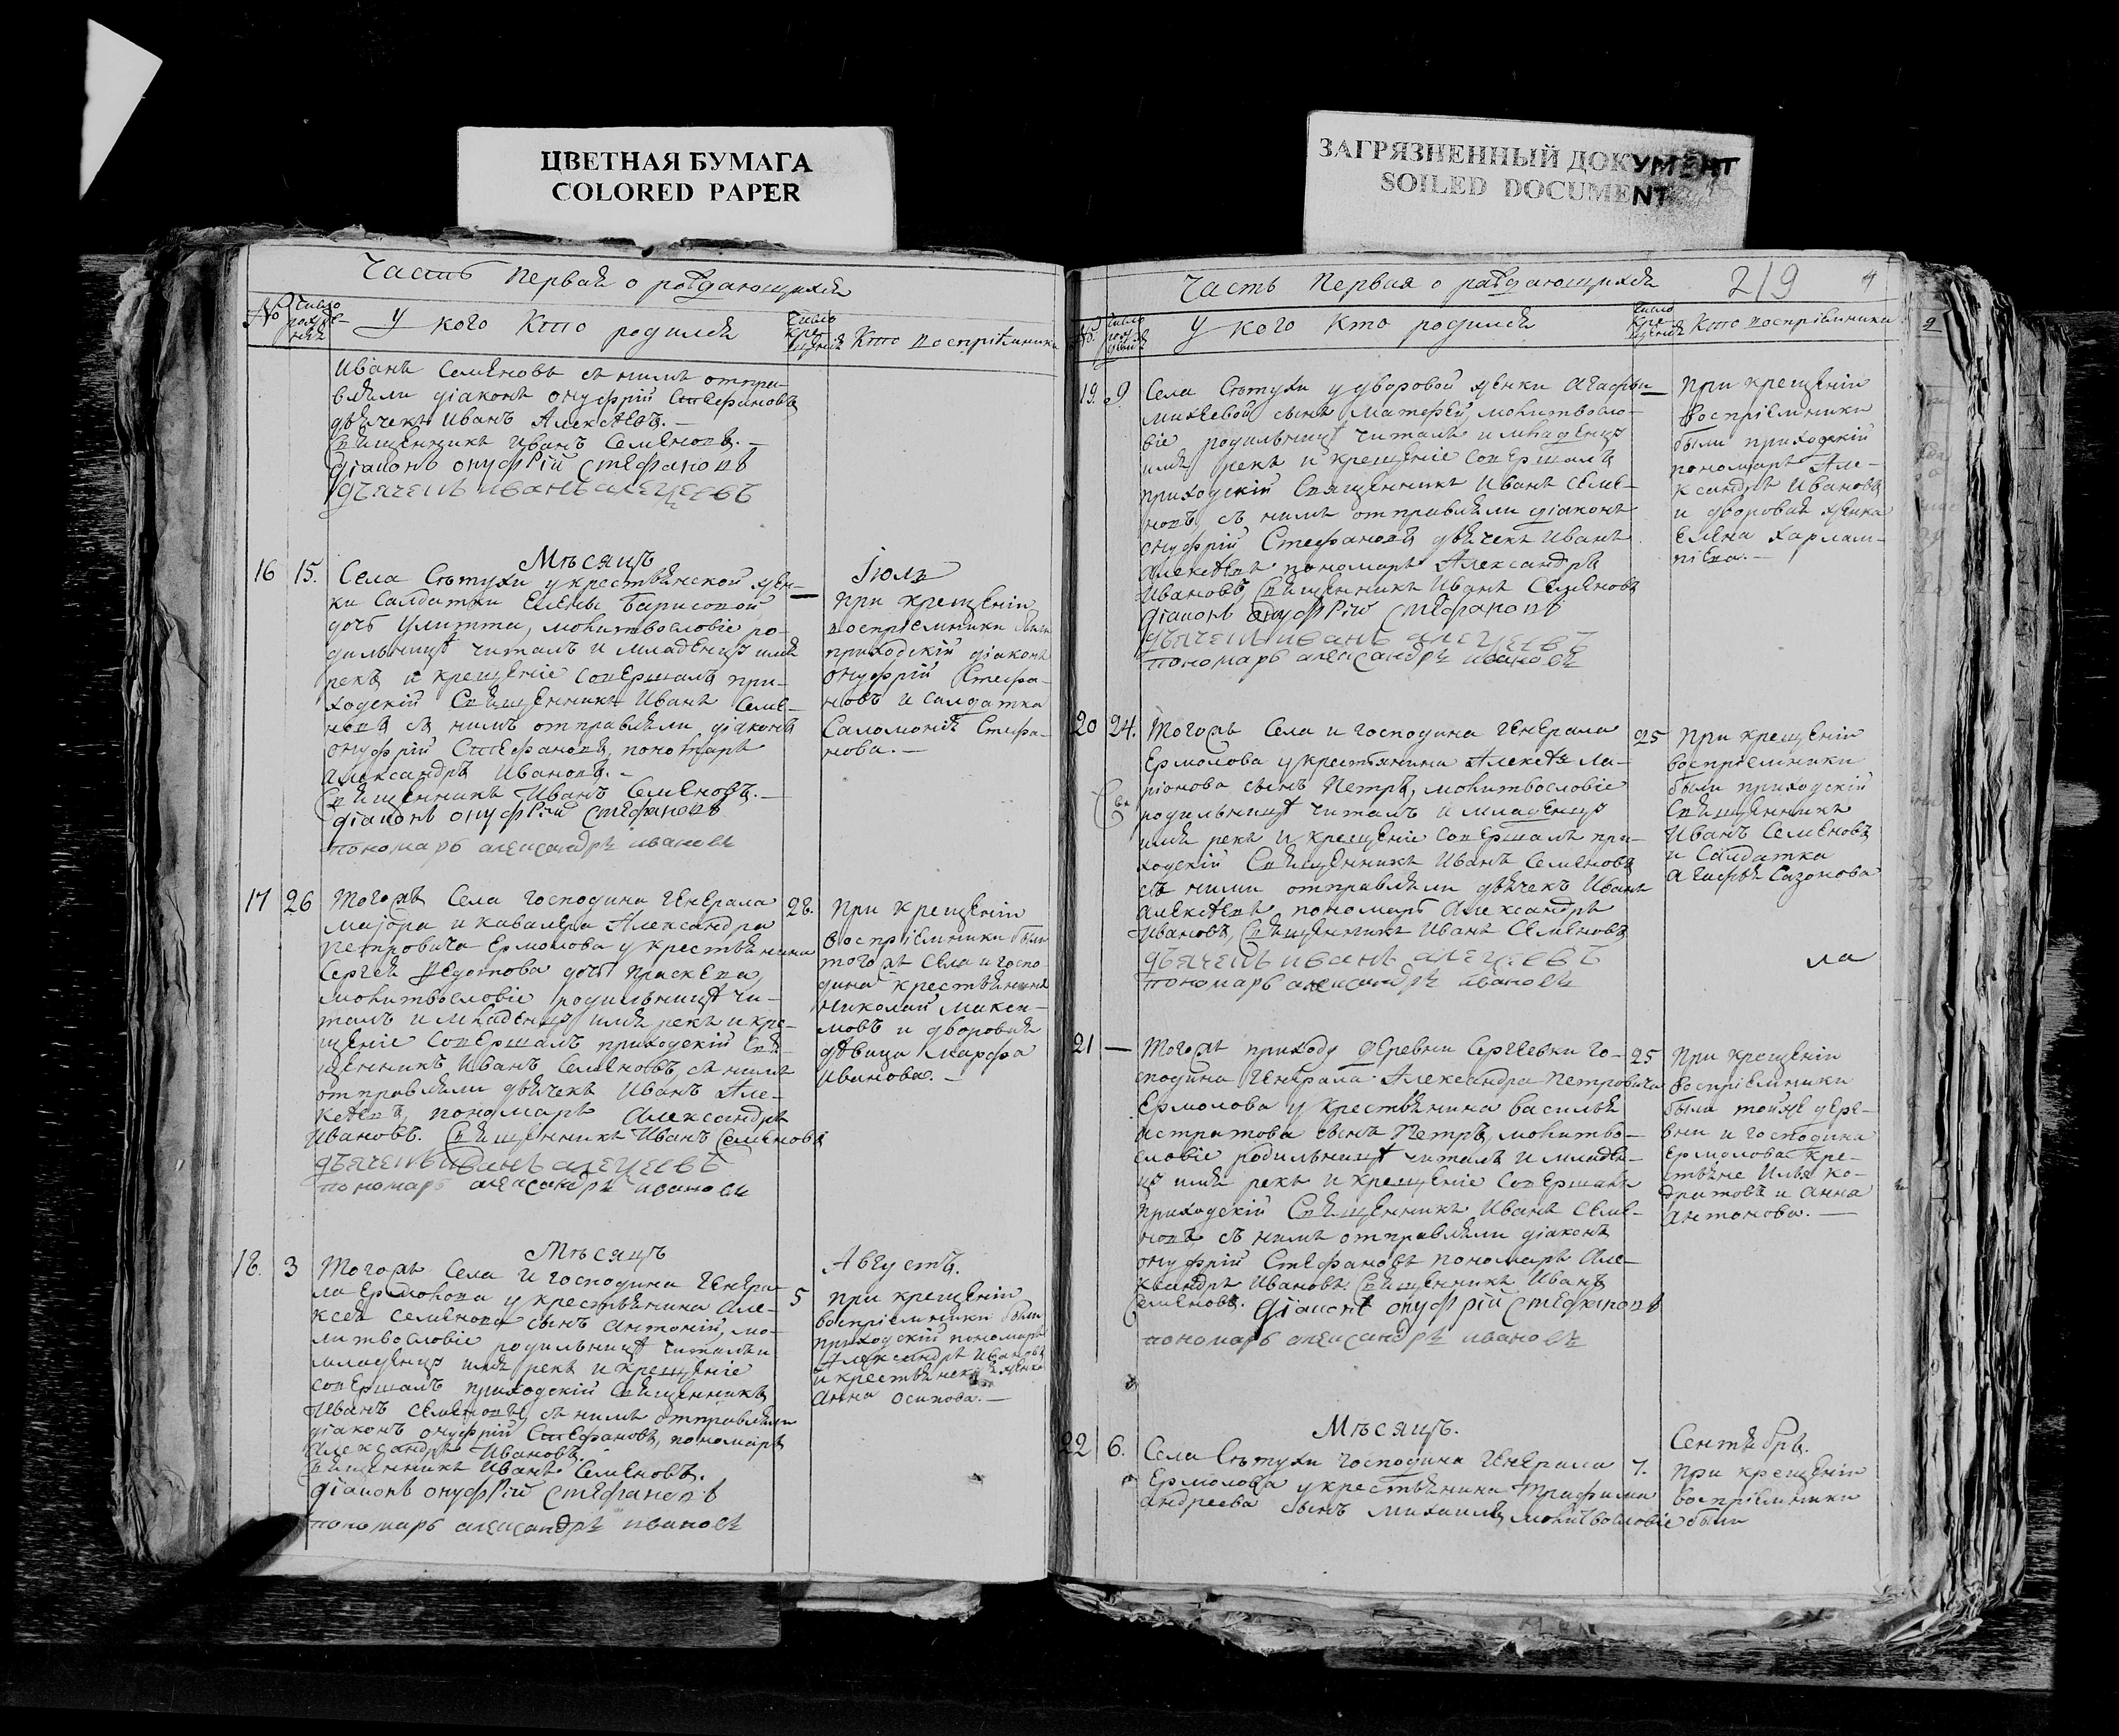 ЦВЕТНАЯ БУМАГА
COLORED PAPER
ЗАГРЯЗНЕННЫЙ ДОКУМЕНТ
SOILED DOCUMENT
Часть Первая о раждающихся
№ Число рожде-нія
У кого Кто родился
Число кре-щенія
Кто воспріемники
Иванъ Семеновъ съ нимъ отпра-
вляли діаконъ Онуфрій Стефановъ
дьячекъ Иванъ Алексѣевъ.-
Священникъ Иванъ Семеновъ.-
Діаконъ Онуфрій Стефановъ
дьячекъ иванъ алецеевъ
Мѣсяцъ
Іюль
16 15. Села Сѣтухи у крестьянской жен-
ки Салдатки Елены Барисовой
дочь Улитта, молитвословіе ро-
дильницѣ читалъ и младенцу имя
рекъ и крещеніе совершалъ при-
ходскій Священникъ Иванъ Семе-
новъ съ нимъ отправляли діаконъ
Онуфрій Стефановъ, пономарь
Александръ Ивановъ.-
Священникъ Иванъ Семеновъ.-
Діаконъ Онуфрій Стефановъ
пономарь александръ ивановъ
—
при крещеніи
воспріемники были
приходскій діаконъ
Онуфрій Стефа-
новъ и салдатка
Саломонія Стефа-
нова.-
17 26 Тогожъ Села господина Генерала
Маіора и кавалера Александра
Петровича Ермолова у крестьянина
Сергея Федотова дочь Праскева,
молитвословіе родильницѣ чи-
талъ и младенцу имя рекъ и кре-
щеніе совершалъ приходскій Свя-
щенникъ Иванъ Семеновъ, съ нимъ
отправляли дьячекъ Иванъ Але-
ксѣевъ, пономарь Александръ
Ивановъ. Священникъ Иванъ Семеновъ
дьячекъ иванъ алецеевъ
пономарь александръ ивановъ
28. при крещеніи
воспріемники были
тогожъ села и госпо-
дина крестьянинъ
Николай Макси-
мовъ и дворовая
дѣвица Марфа
Иванова.-
Мѣсяцъ
Августъ.
18. 3 Тогожъ Села и господина Генера-
ла Ермолова у крестьянина Але-
ксея Семенова сынъ Антоній, мо-
литвословіе родильницѣ читалъ и
младенцу имя рекъ и крещеніе
совершалъ приходскій Священникъ
Иванъ Семеновъ, съ нимъ отправляли
діаконъ Онуфрій Стефановъ, пономарь
Александръ Ивановъ.
Священникъ Иванъ Семеновъ.
Діаконъ Онуфрій Стефановъ
пономарь александръ ивановъ
5 при крещеніи
воспріемники были
приходскій пономарь
Александръ Ивановъ
и крестьянская женка
Анна Осипова.-
Часть Первая о раждающихся
219
4
№. Число рожденія
У кого Кто родился
Число кре-щенія
Кто воспріемники
19. 9 Села Сѣтухи у дворовой женки Агафьи
Михеевой сынъ Матефей, молитвосло-
віе родильницѣ читалъ и младенцу
имя рекъ и крещеніе совершалъ
приходскій Священникъ Иванъ Семе-
новъ, съ нимъ отправляли діаконъ
Онуфрій Стефановъ дьячекъ Иванъ
Алексѣевъ пономарь Александръ
Ивановъ Священникъ Иванъ Семеновъ
Діаконъ Онуфрій Стефановъ
дьячекъ иванъ алецеевъ
пономарь александръ ивановъ
—
При крещеніи
воспріемники
были приходскій
пономарь Але-
ксандръ Ивановъ
и дворовая женка
Елена Харлам-
піева.-
20 24. Тогожъ Села и господина Генерала
Ермолова у крестьянина Алексѣя Ла-
ріонова сынъ Петръ, молитвословіе
родильницѣ читалъ и младенцу
имя рекъ и крещеніе совершалъ при-
ходскій Священникъ Иванъ Семеновъ
съ ними отправляли дьячекъ Иванъ
Алексѣевъ пономарь Александръ
Ивановъ, Священникъ Иванъ Семеновъ
дьячекъ иванъ алецеевъ
пономарь александръ ивановъ
25 при крещеніи
воспріемники
были приходскій
Священникъ
Иванъ Семеновъ
и Салдатка
Агафья Сазонова
ла
21 — Тогожъ приходу деревни Сергѣевки го-
сподина Генерала Александра Петровича
Ермолова у крестьянина Василья
Астратова сынъ Петръ, молитво-
словіе родильницѣ читалъ и младен-
цу имя рекъ и крещеніе совершалъ
приходскій Священникъ Иванъ Семе-
новъ съ нимъ отправляли діаконъ
Онуфрій Стефановъ пономарь Але-
ксандръ Ивановъ Священникъ Иванъ
Семеновъ. Діаконъ Онуфрій Стефановъ
пономарь александръ ивановъ
25 При крещеніи
воспріемники
были тойже дере-
вни и господина
Ермолова кре-
стьяне Илья Ко-
дратовъ и Анна
Антонова.-
Мѣсяцъ.
Сентябрь.
22 6. Села Сѣтухи господина Генерала
Ермолова у крестьянина Трифима
Андреева сынъ Михаилъ, молитвословіе
7. при крещеніи
воспріемники
были